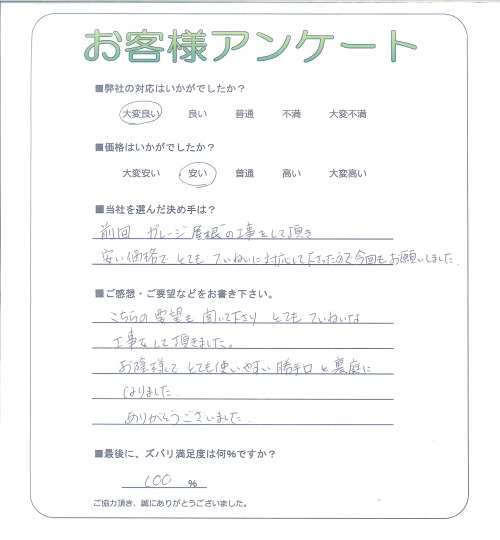 お客様アンケート
■弊社の対応はいかがでしたか？
大変良い 良い 普通 不満 大変不満
■価格はいかがでしたか？
大変安い 安い 普通 高い 大変高い
■当社を選んだ決め手は？
前回 ガレージ屋根の工事をして頂き
安い価格で とても ていねいに対応して下さったので今回もお願いしました。
■ご感想・ご要望などをお書き下さい。
こちらの要望も聞いて下さり とても ていねいな
工事をして頂きました。
お陰様で とても使いやすい 勝手口 と 裏庭に
なりました。
ありがとうございました。
■最後に、ズバリ満足度は何％ですか？
100 ％
ご協力頂き、誠にありがとうございました。